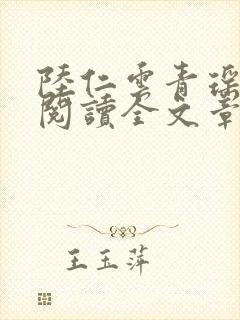 陸仁雲青瑶
閱讀全文章
王玉萍